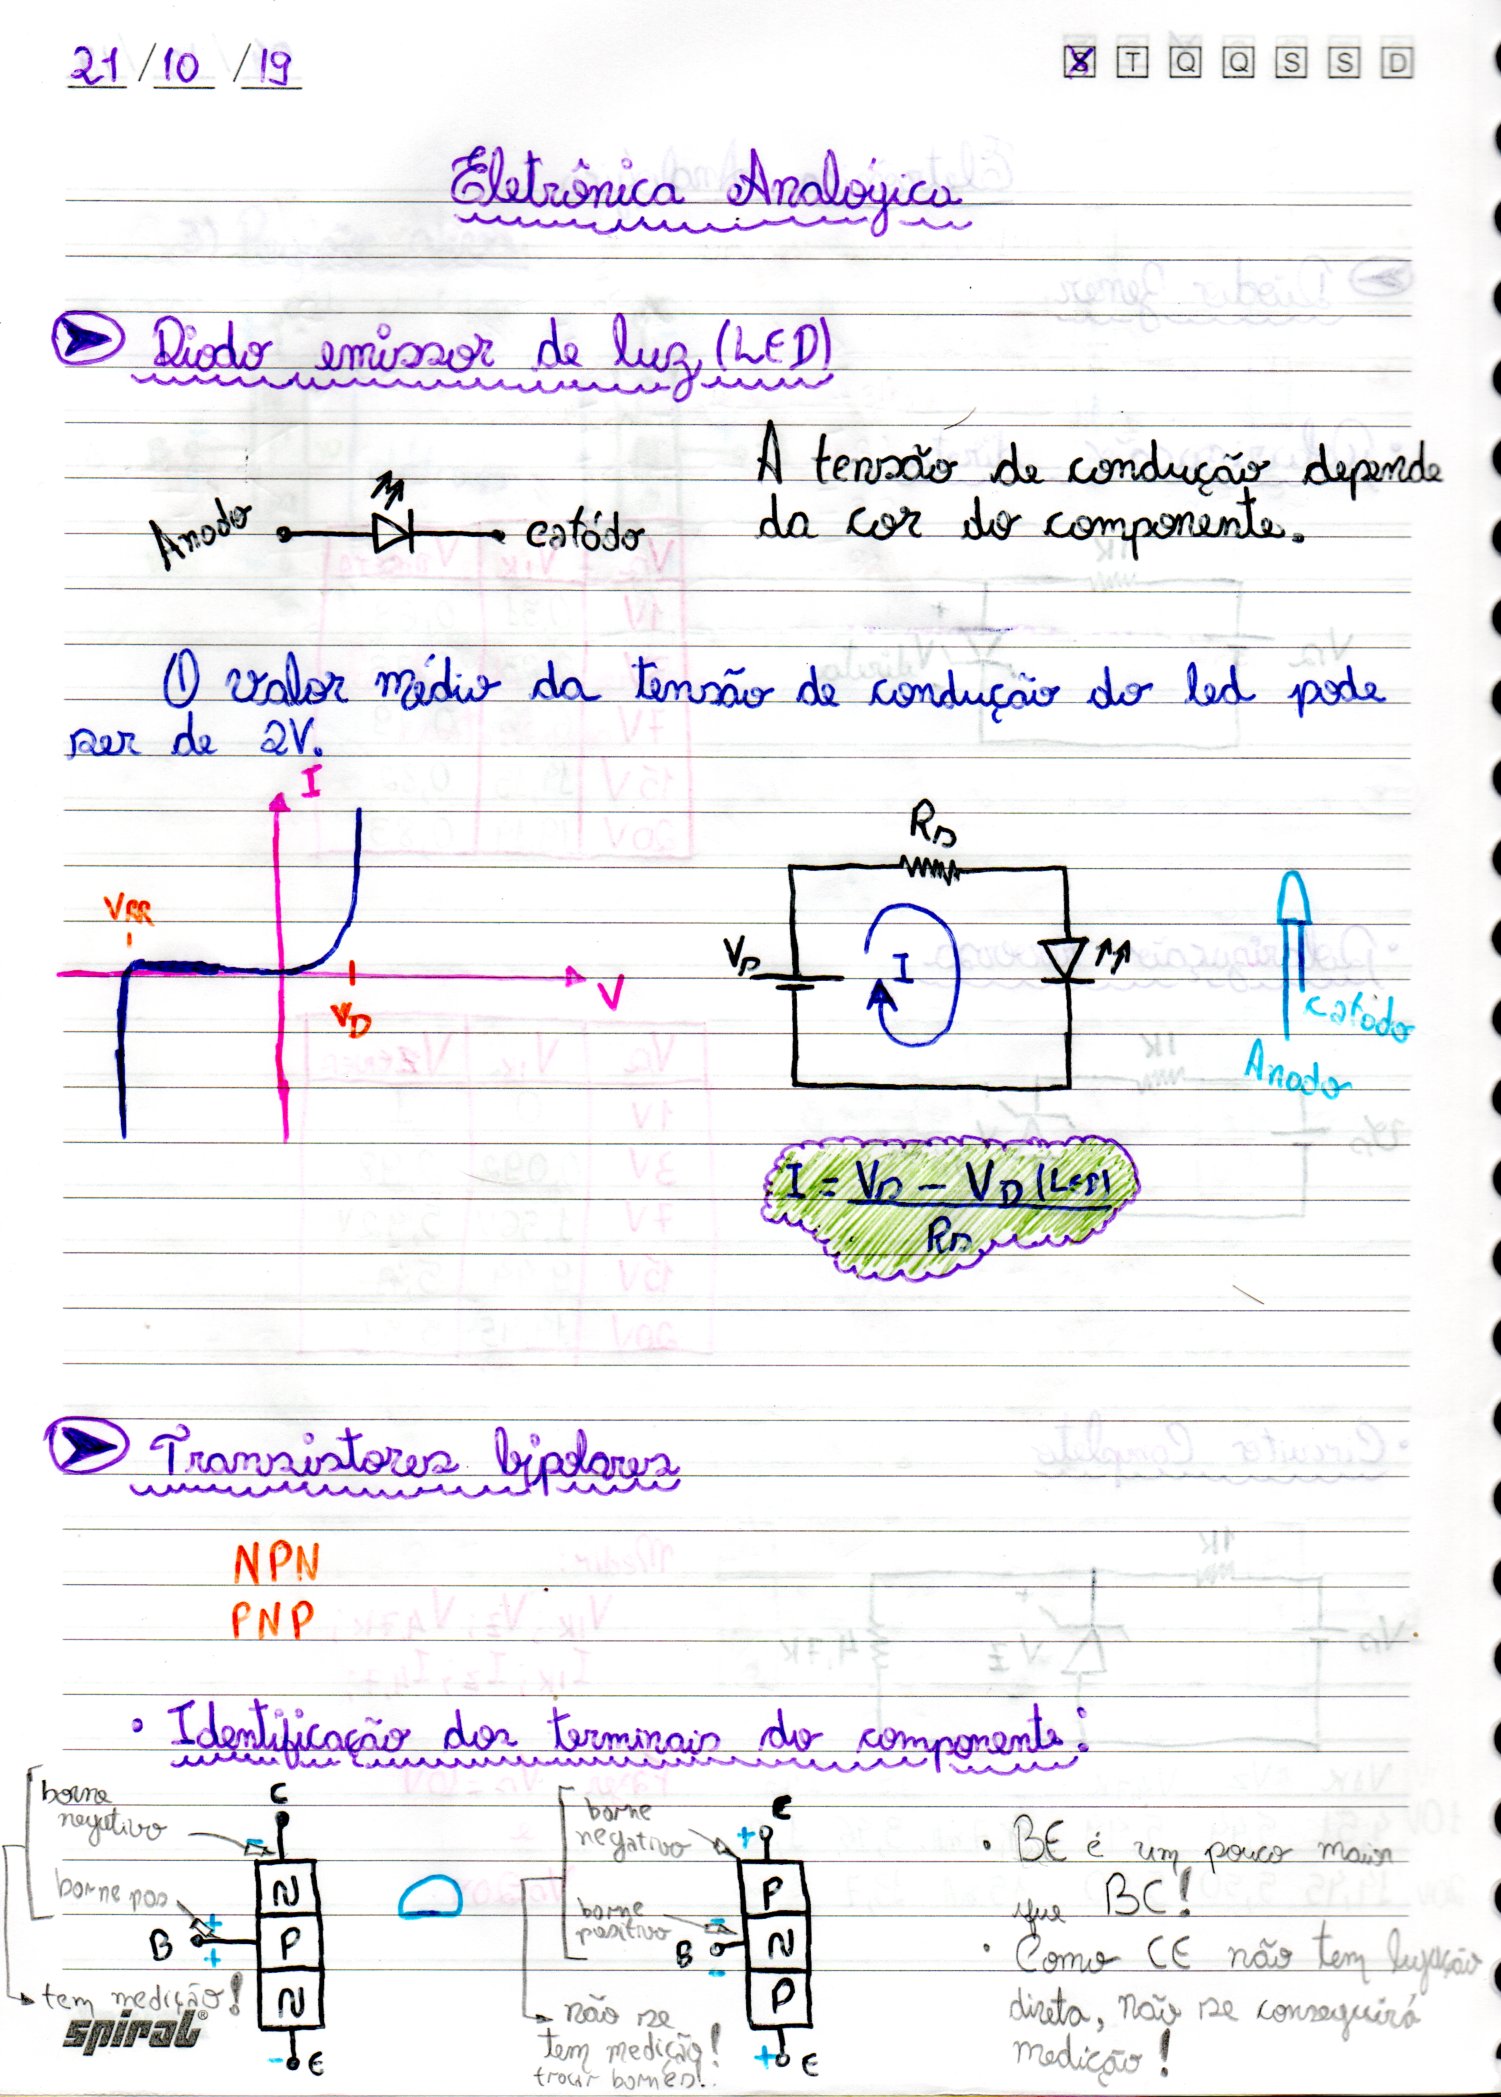 21/10/19
S T Q Q S S D
Eletrônica Analógica
Diodo emissor de luz (LED)
Anodo
catódo
A tensão de condução depende
da cor do componente.
O valor médio da tensão de condução do led pode
ser de 2V.
I
VRR
V
VD
Rs
Vs
I
catódo
Anodo
I = Vs - VD (LED)
Rs
Transistores bipolares
NPN
PNP
• Identificação dos terminais do componente:
borne
negativo
borne pos
tem medição!
C
-
N
P
N
B
+
+
-
E
borne
negativo
borne
positivo
não se
tem medição!
trocar bornes!
C
+
P
N
P
B
-
-
+
E
• BE é um pouco maior
que BC!
• Como CE não tem ligação
direta, não se conseguirá
medição!
spiral®